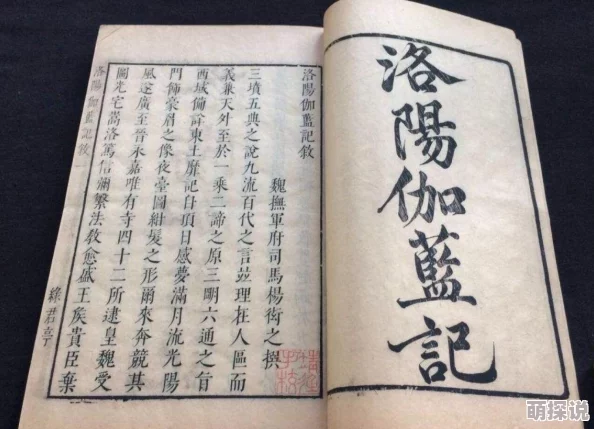 洛陽伽藍記
洛陽伽藍記敘
魏撫軍府司馬楊衒之撰
三墳五典之說九流百代之言竝理在人區而
義兼天外至於一乘二諦之原三明六通之旨
西域備詳東土靡記自項日感夢滿月流光陽
門飾豪眉之像夜臺圖紺髮之形爾來奔競其
風遂廣至晉永嘉唯有寺四十二所逮皇魏受
圖光宅嵩洛篤信彌繁法敎愈盛王矦貴臣棄
洛陽伽藍記敘
綠君亭
萌探说